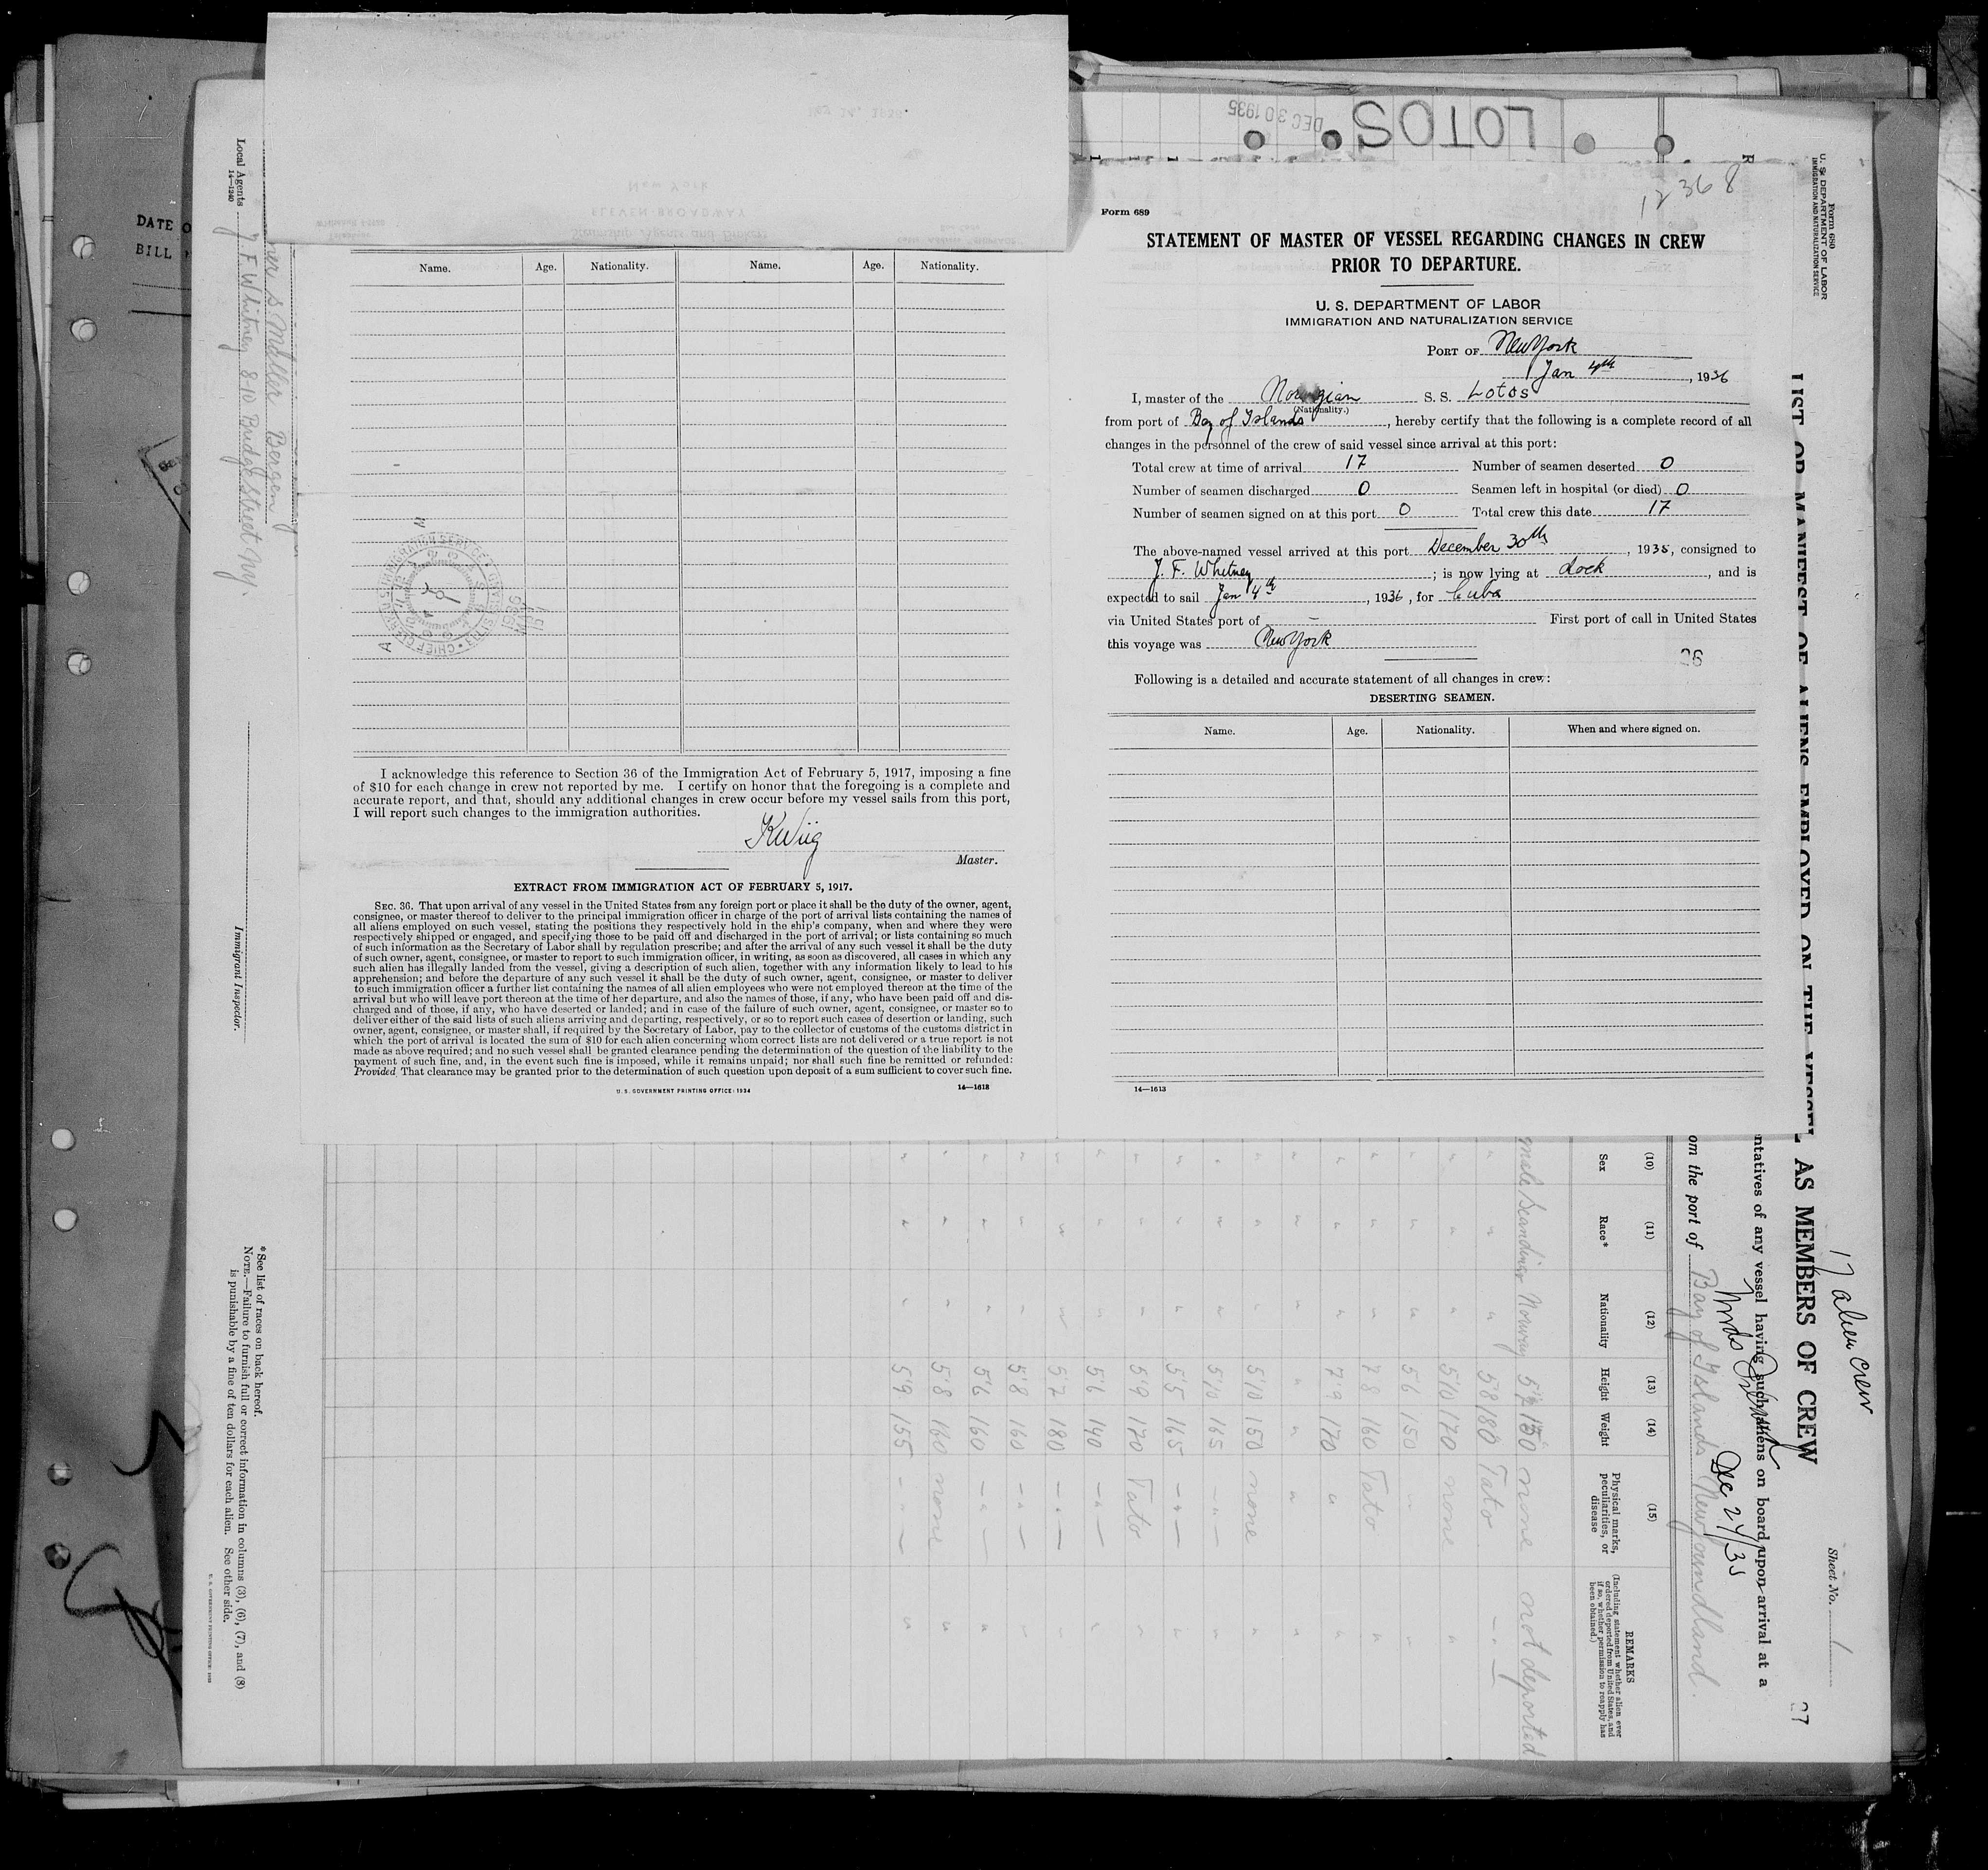 LOTOS
DEC 30 1935
12368
Form 689
STATEMENT OF MASTER OF VESSEL REGARDING CHANGES IN CREW
PRIOR TO DEPARTURE.
U. S. DEPARTMENT OF LABOR
IMMIGRATION AND NATURALIZATION SERVICE
PORT OF New York
Jan 4th, 1936
I, master of the Norwegian S. S. Lotos
(Nationality.)
from port of Bay of Islands, hereby certify that the following is a complete record of all
changes in the personnel of the crew of said vessel since arrival at this port:
Total crew at time of arrival 17 Number of seamen deserted 0
Number of seamen discharged 0 Seamen left in hospital (or died) 0
Number of seamen signed on at this port 0 Total crew this date 17
The above-named vessel arrived at this port December 30th, 1935, consigned to
J. F. Whitney; is now lying at dock, and is
expected to sail Jan 4th, 1936, for Cuba
via United States port of – First port of call in United States
this voyage was New York
Following is a detailed and accurate statement of all changes in crew:
DESERTING SEAMEN.
Name. Age. Nationality. When and where signed on.
14—1613
Name. Age. Nationality. Name. Age. Nationality.
I acknowledge this reference to Section 36 of the Immigration Act of February 5, 1917, imposing a fine
of $10 for each change in crew not reported by me. I certify on honor that the foregoing is a complete and
accurate report, and that, should any additional changes in crew occur before my vessel sails from this port,
I will report such changes to the immigration authorities.
KWiig
Master.
EXTRACT FROM IMMIGRATION ACT OF FEBRUARY 5, 1917.
SEC. 36. That upon arrival of any vessel in the United States from any foreign port or place it shall be the duty of the owner, agent,
consignee, or master thereof to deliver to the principal immigration officer in charge of the port of arrival lists containing the names of
all aliens employed on such vessel, stating the positions they respectively hold in the ship's company, when and where they were
respectively shipped or engaged, and specifying those to be paid off and discharged in the port of arrival; or lists containing so much
of such information as the Secretary of Labor shall by regulation prescribe; and after the arrival of any such vessel it shall be the duty
of such owner, agent, consignee, or master to report to such immigration officer, in writing, as soon as discovered, all cases in which any
such alien has illegally landed from the vessel, giving a description of such alien, together with any information likely to lead to his
apprehension; and before the departure of any such vessel it shall be the duty of such owner, agent, consignee, or master to deliver
to such immigration officer a further list containing the names of all alien employees who were not employed thereon at the time of the
arrival but who will leave port thereon at the time of her departure, and also the names of those, if any, who have been paid off and dis-
charged and of those, if any, who have deserted or landed; and in case of the failure of such owner, agent, consignee, or master so to
deliver either of the said lists of such aliens arriving and departing, respectively, or so to report such cases of desertion or landing, such
owner, agent, consignee, or master shall, if required by the Secretary of Labor, pay to the collector of customs of the customs district in
which the port of arrival is located the sum of $10 for each alien concerning whom correct lists are not delivered or a true report is not
made as above required; and no such vessel shall be granted clearance pending the determination of the question of the liability to the
payment of such fine, and, in the event such fine is imposed, while it remains unpaid; nor shall such fine be remitted or refunded:
Provided, That clearance may be granted prior to the determination of such question upon deposit of a sum sufficient to cover such fine.
U. S. GOVERNMENT PRINTING OFFICE: 1934 14—1613
DATE O
BILL
Form 680
U. S. DEPARTMENT OF LABOR
IMMIGRATION AND NATURALIZATION SERVICE
17 alien crew
Sheet No. 1
LIST OR MANIFEST OF ALIENS EMPLOYED ON THE VESSEL AS MEMBERS OF CREW
ntatives of any vessel having such aliens on board upon arrival at a
Dec 24/35
om the port of Bay of Islands Newfoundland.
(10) (11) (12) (13) (14) (15)
Sex Race* Nationality Height Weight Physical marks, peculiarities, or disease
REMARKS
(Including statement whether alien ever ordered deported from United States, and if so, whether permission to reapply has been obtained.)
male Scandinav Norway none not deported
" " " 58 180 Tato
" " " 510 170 none
" " " 56 150 "
" " " 78 160 Tato "
" " " 79 170 " "
" " " " " " "
" " " 510 150 none "
" " " 510 165 - " - "
" " " 55 165 - " - "
" " " 59 170 Tato "
" " " 56 140 - " - "
" " " 57 180 - " - "
" " " 58 160 - " - "
" " " 56 160 - " - "
" " " 58 160 none "
" " " 59 155 - - "
Local Agents J F Whitney 810 Bridge Street N.Y.
14—1240
Immigrant Inspector.
*See list of races on back hereof.
NOTE.—Failure to furnish full or correct information in columns (3), (6), (7), and (8)
is punishable by a fine of ten dollars for each alien. See other side.